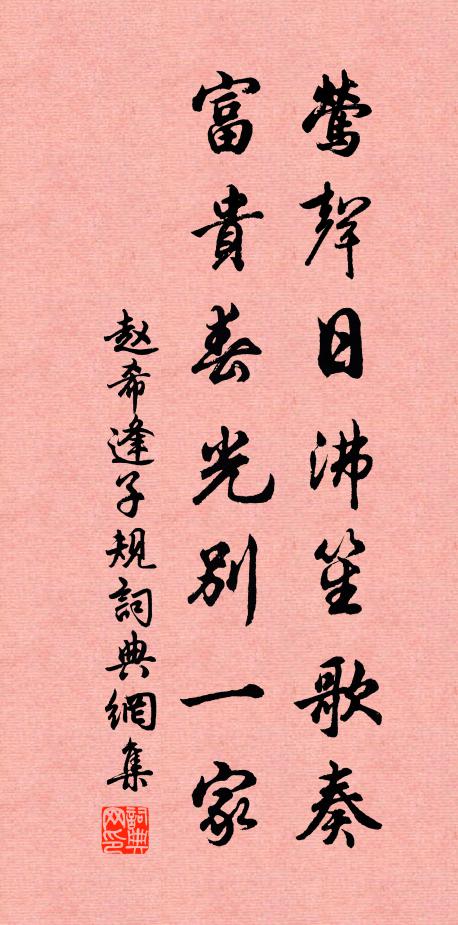 鶯聲日沸笙歌奏
富貴春光別一家
赵希逢子規詞典網集
詞典网印